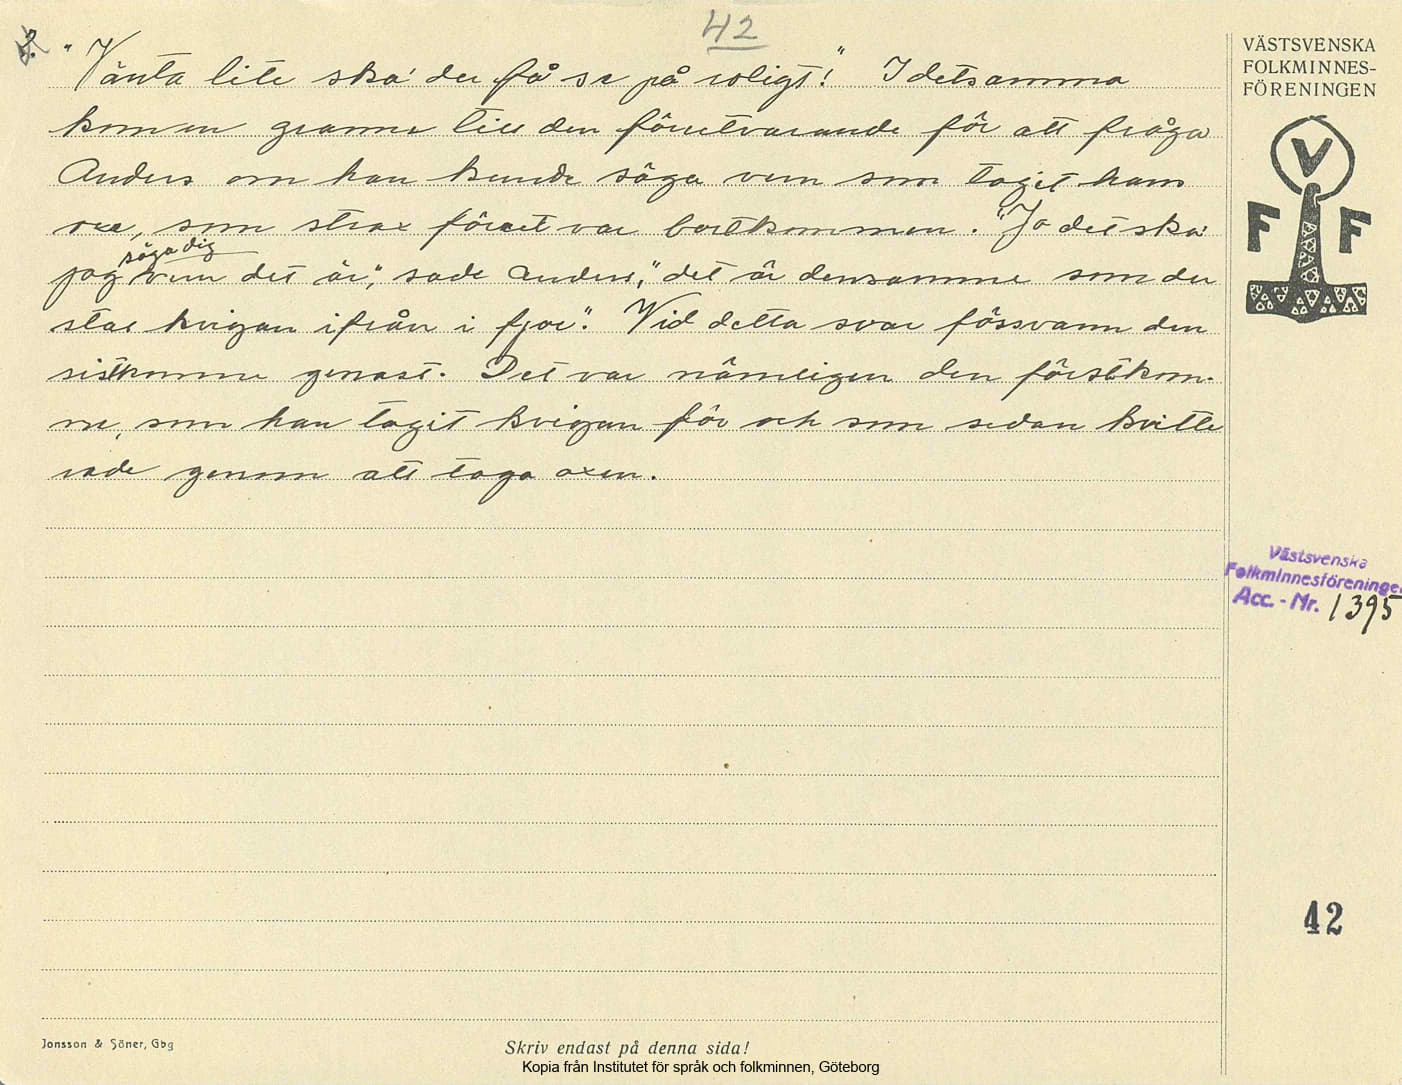 42
"Vänta lite ska' du få se på roligt!" I detsamma
kom en granne till den förutvarande för att fråga
Anders om han kunde säga vem som tagit hans
oxe, som strax förut var bortkommen. "Jo det ska'
säga dig
jag vem det är", sade Anders, "det är densamme som du
stal kvigan ifrån i fjor". Vid detta svar försvann den
sistkomne genast. Det var nämligen den förstkom-
ne, som han tagit kvigan för och som sedan kvitte
rade genom att taga oxen.
VÄSTSVENSKA
FOLKMINNES-
FÖRENINGEN
V
F F
Västsvenska
Folkminnesföreningen
Acc. - Nr. 1395
42
Jonsson & Söner, Gbg
Skriv endast på denna sida!
Kopia från Institutet för språk och folkminnen, Göteborg